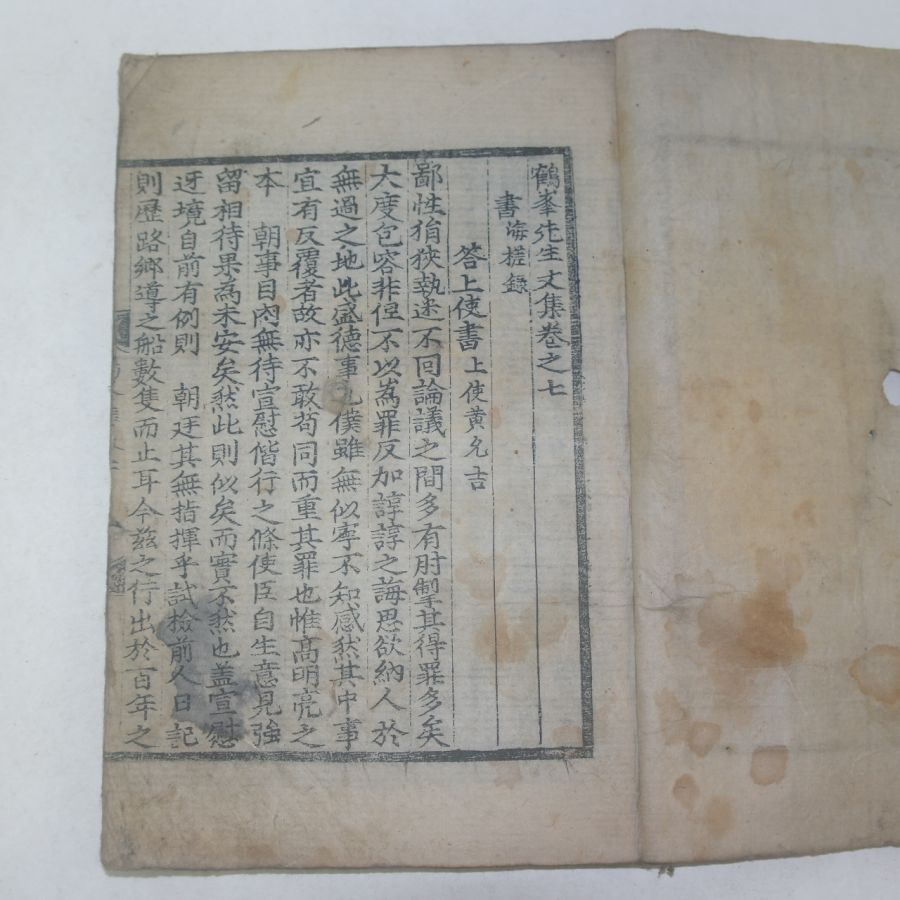 鶴峯先生文集卷之七
書 海槎錄
答上使書 上使黃允吉
鄙性狷狹執迷不回論議之間多有肘掣其得罪多矣
大度包容非但不以爲罪反加諄諄之誨思欲納人於
無過之地此盛德事也僕雖無似寧不知感然其中事
宜有反覆者故亦不敢苟同而重其罪也惟高明亮之
本 朝事目內無待宣慰偕行之條使臣自生意見強
留相待果爲未安矣然此則似矣而實不然也盖宣慰
迓境自前有例則 朝廷其無指揮乎試檢前人日記
則歷路鄉導之船數隻而止耳今玆之行出於百年之